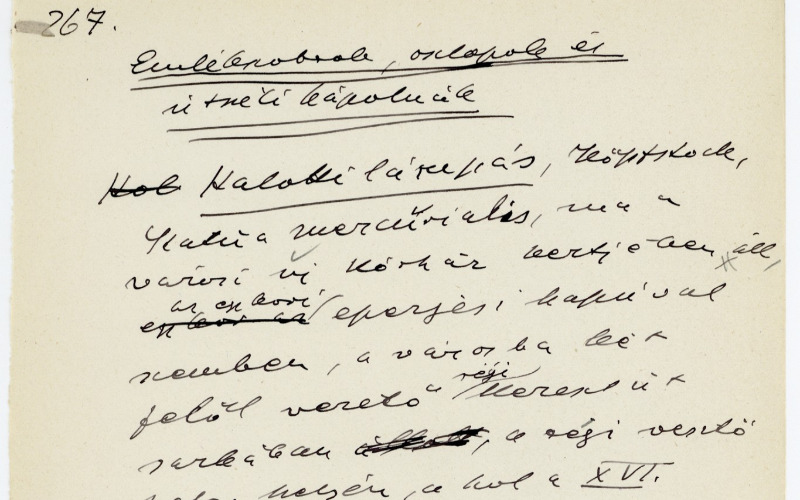 267.
Emlékszobrok, oszlopok és
útszéli kápolnák
Kol Halotti lámpás, Köpfstock,
Statua mercurialis, ma a
városi új Kórház kertjében áll,
az egykori
egykor az eperjesi kapuval
szemben, a városba két
felől vezető régi Kereszt út
sarkában, a régi vesztő
helyén, a hol a XVI.